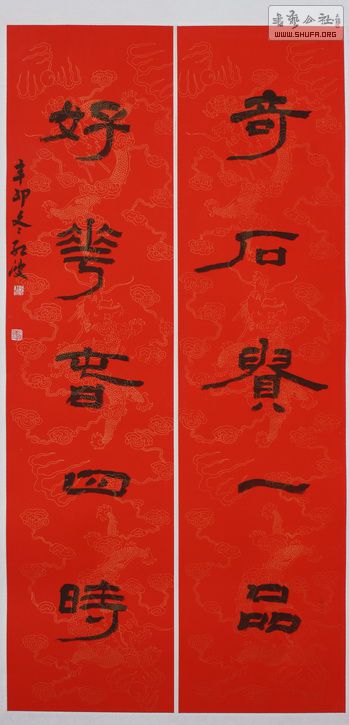 書藝公社
WWW.SHUFA.ORG
奇石賢一品
好花香四時
辛卯冬